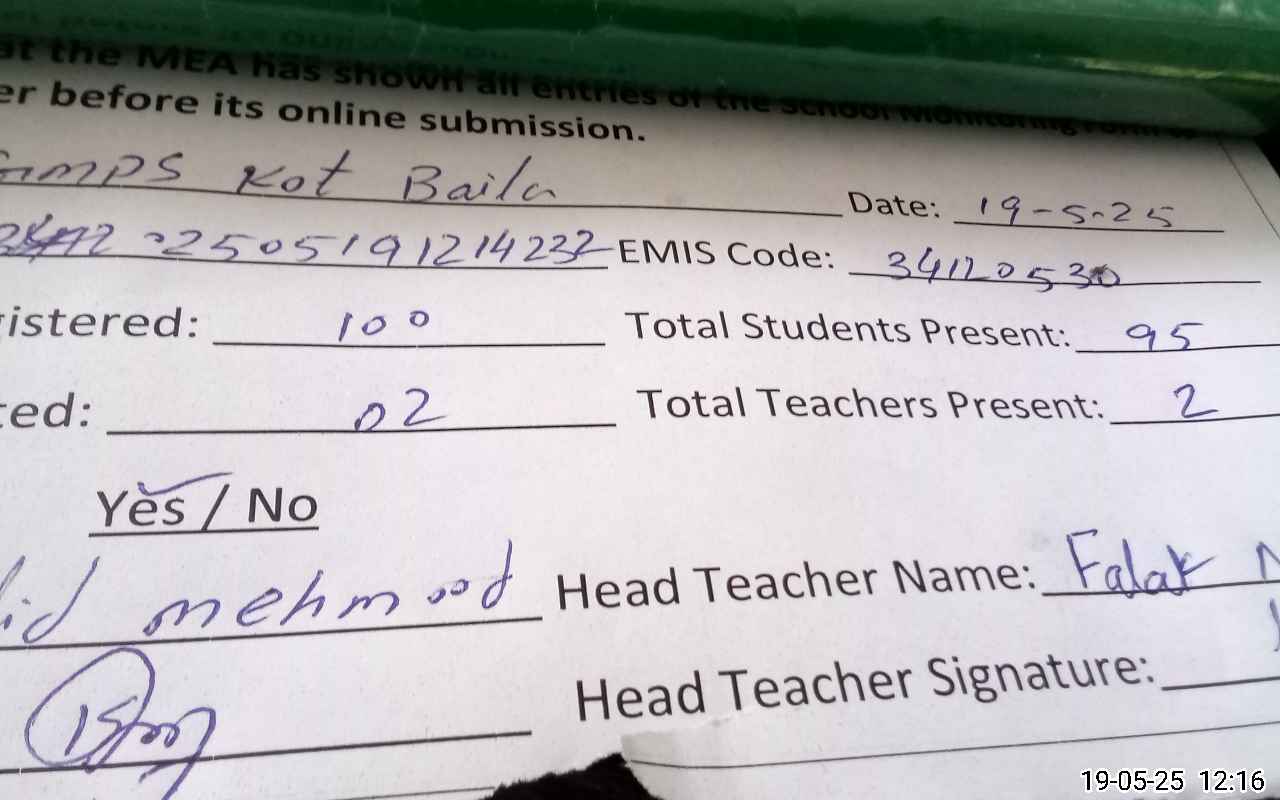 at the MEA has shown all entries of the School Monitoring Form
er before its online submission.
GMPS Kot Baila Date: 19-5-25
25051912142 32 EMIS Code: 34120530
istered: 100 Total Students Present: 95
ted: 02 Total Teachers Present: 2
Yes / No
id mehmood Head Teacher Name: Falak N
Head Teacher Signature:
19-05-25 12:16